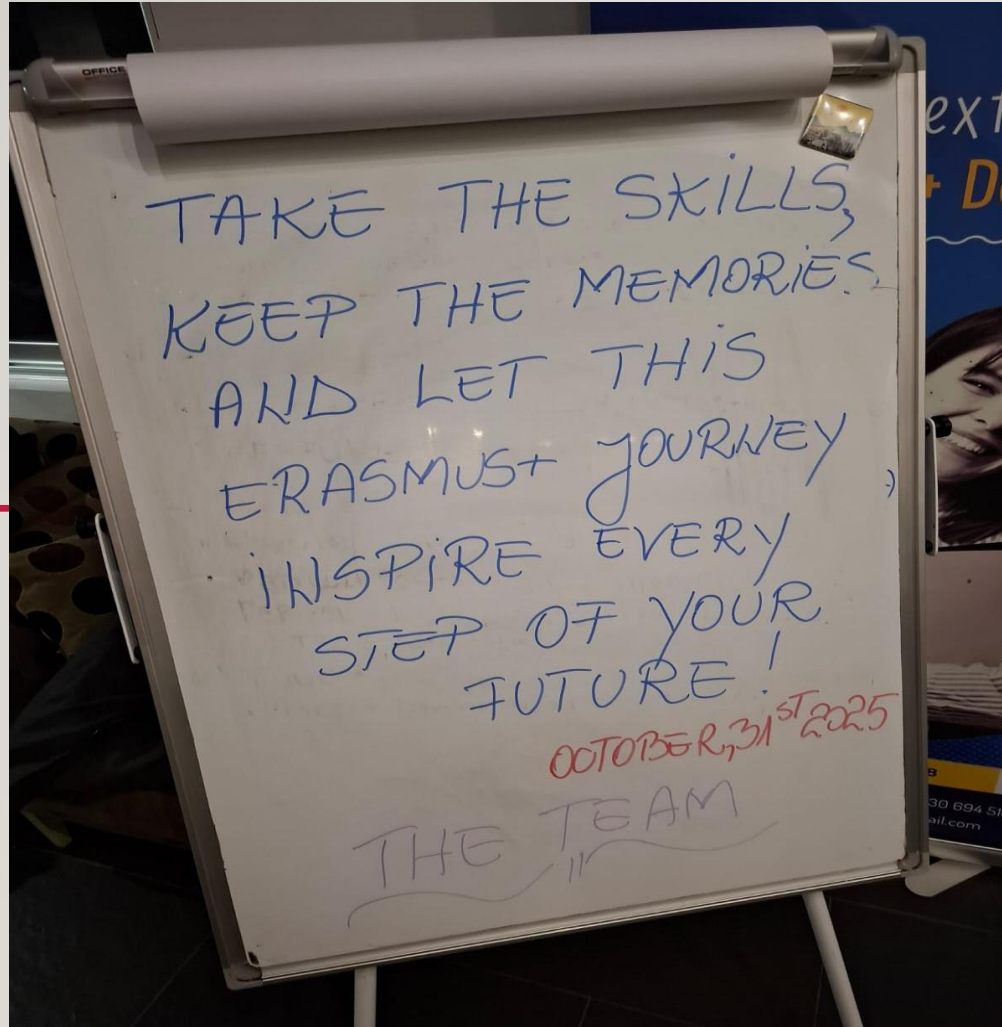 OFFICE
TAKE THE SKiLLS,
KEEP THE MEMORiES
AND LET THiS
ERASMUS+ JOURNEY
:)
iNSPiRE EVERY
STEP OF YOUR
FUTURE!
OCTOBER,31ST 2025
THE TEAM
ext
+ D
30 694 51
ail.com